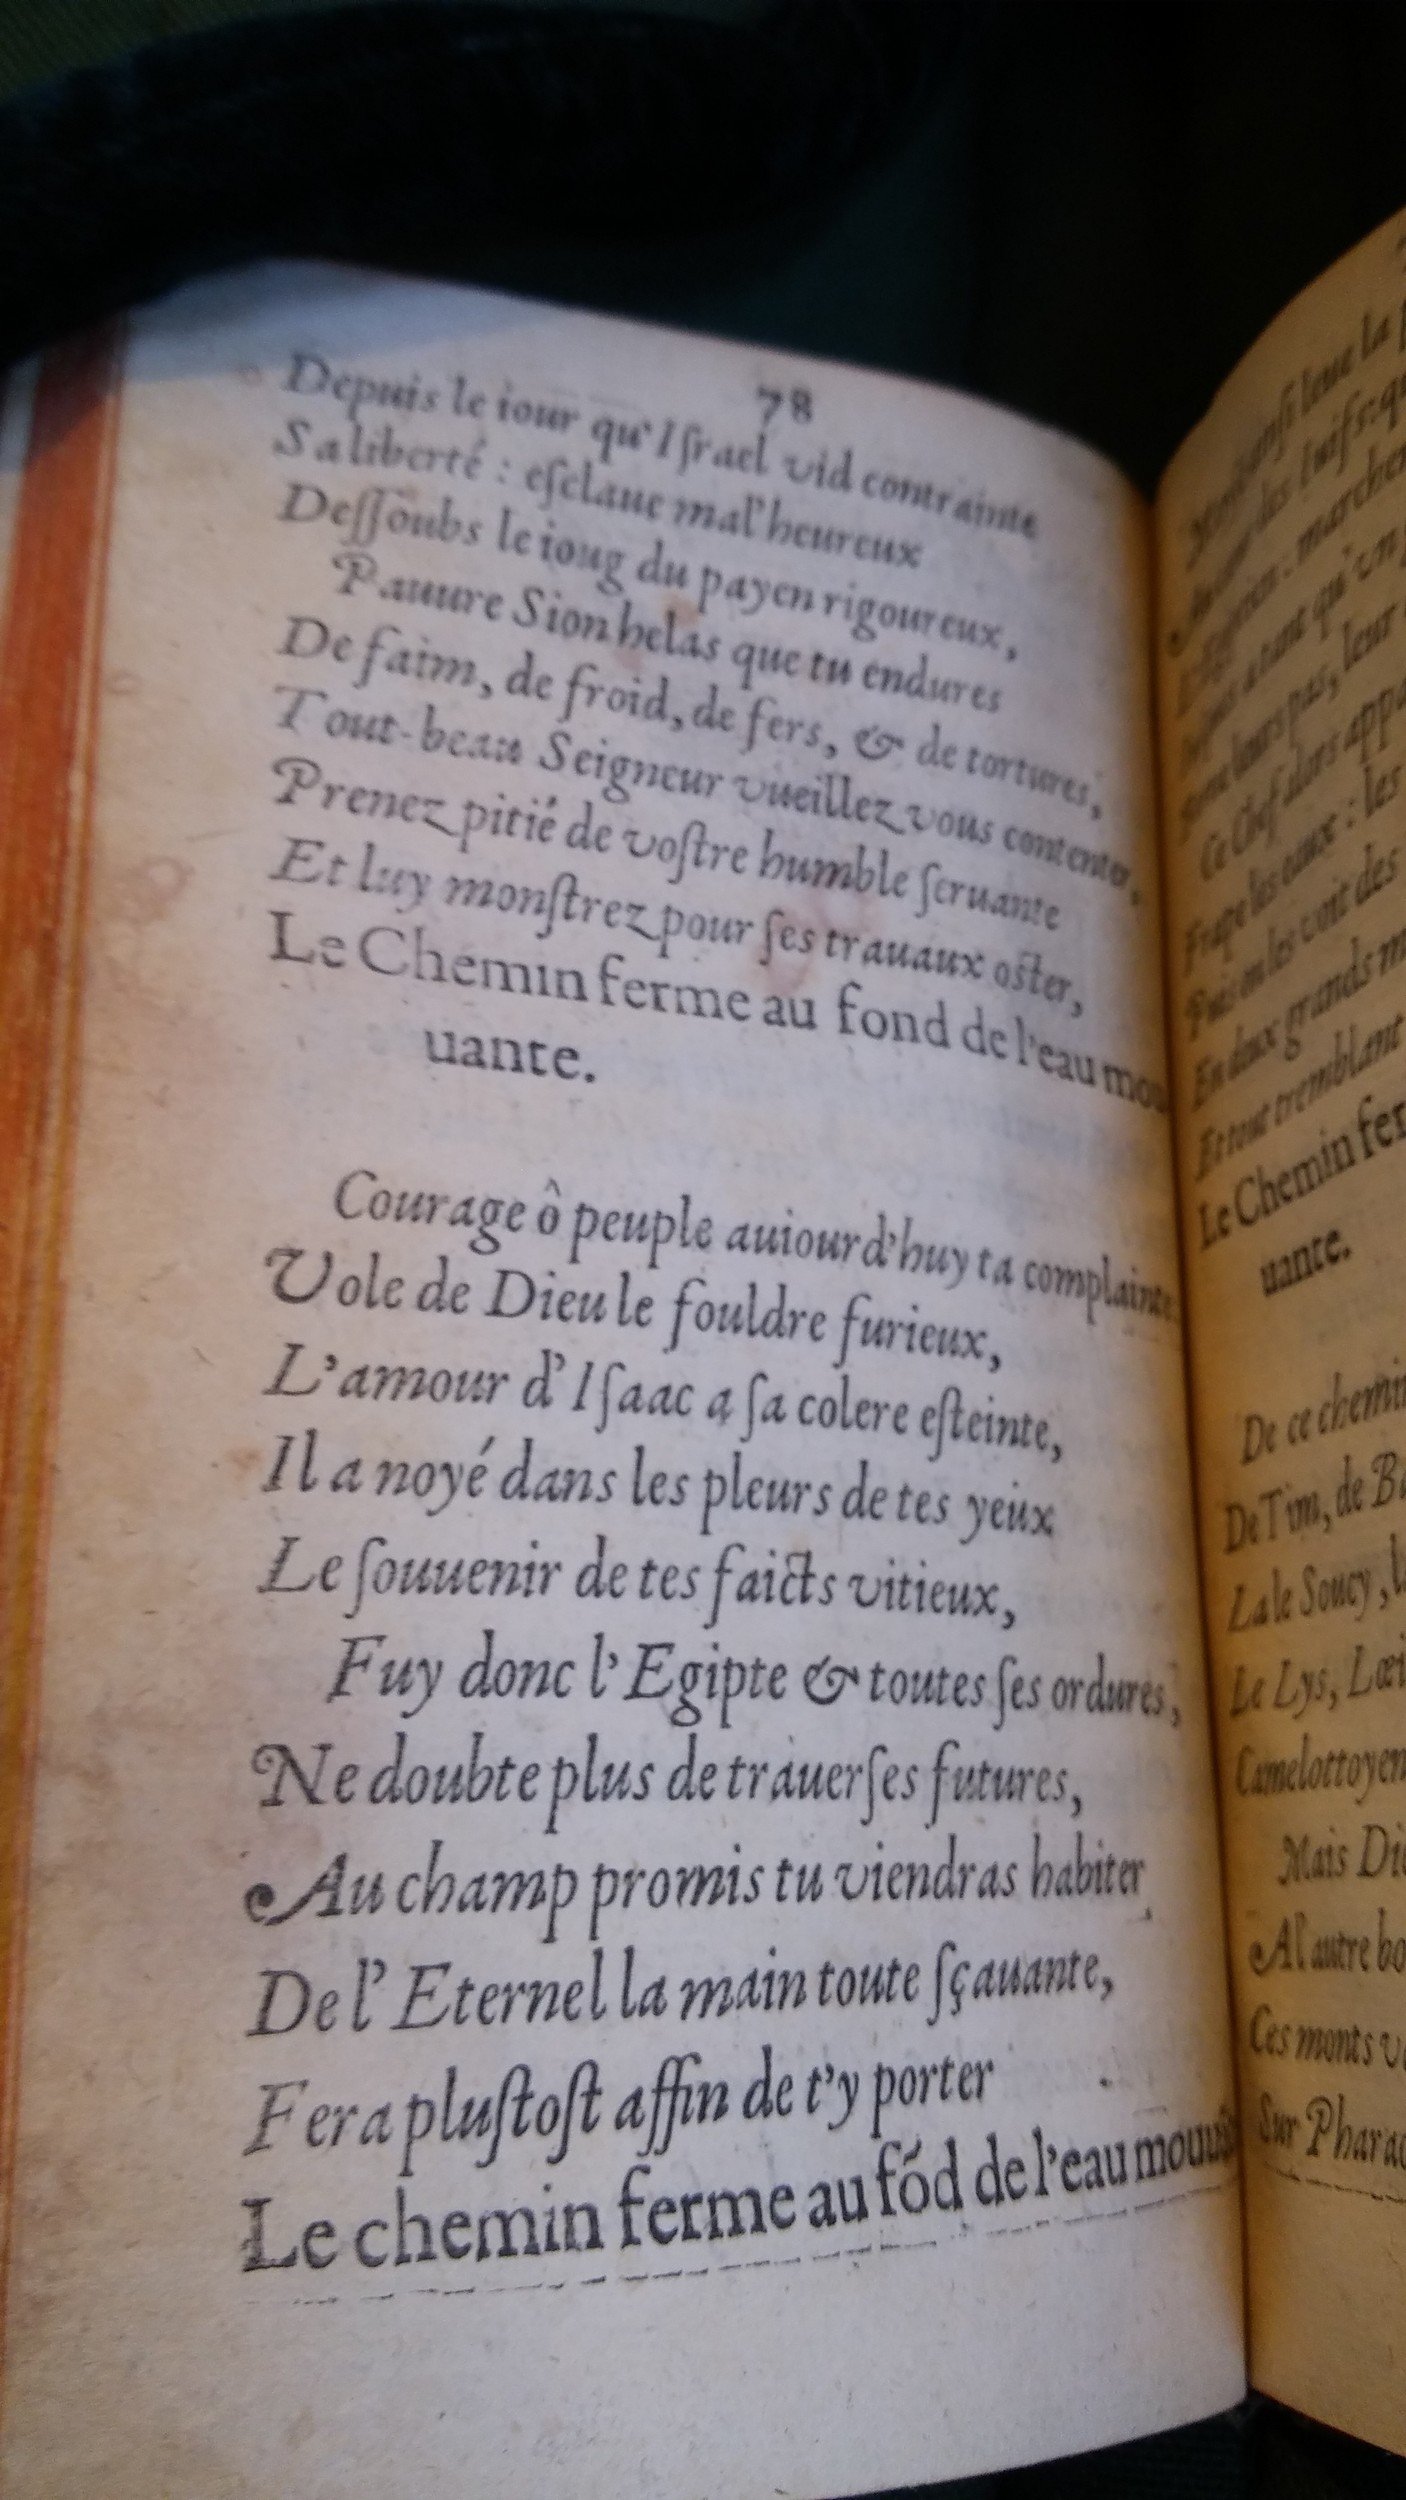 78
Depuis le iour qu'Iſrael vid contrainte
Sa liberté : eſclaue mal'heureux
Deſſoubs le ioug du payen rigoureux,
Pauure Sion helas que tu endures
De faim, de froid, de fers, & de tortures,
Tout-beau Seigneur vueillez vous contenter,
Prenez pitié de voſtre humble ſeruante
Et luy monſtrez pour ſes trauaux oſter,
Le Chemin ferme au fond de l'eau mou
uante.
Courage ô peuple auiourd'huy ta complainte
Vole de Dieu le fouldre furieux,
L'amour d'Iſaac a ſa colere eſteinte,
Il a noyé dans les pleurs de tes yeux
Le ſouuenir de tes faicts vitieux,
Fuy donc l'Egipte & toutes ſes ordures,
Ne doubte plus de trauerſes futures,
Au champ promis tu viendras habiter,
De l'Eternel la main toute ſçauante,
Fera pluſtoſt affin de t'y porter
Le chemin ferme au fód de l'eau
leue la
des Iuifs: qu
marcher
a tant qu'vn
pas, leur
Ce Chef alors
Frape les eaux : les
Puis on les voit des
En deux grands
Et tout tremblant
Le Chemin fer
uante.
De ce chemin
De Tim, de
La le Soucy,
Le Lys,
Camelottoyen
Mais
A l'autre
Ces monts
Sur